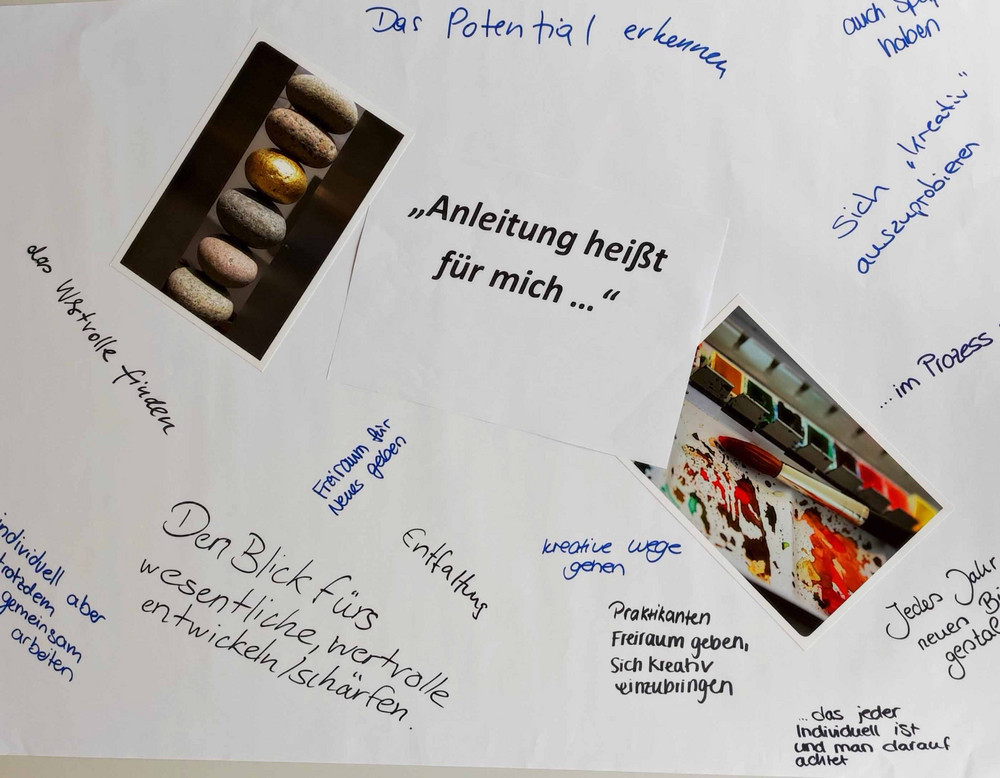 Das Potential erkennen
auch
haben
Sich „kreativ"
auszuprobieren
„Anleitung heißt
für mich ..."
das Wertvolle finden
...im Prozess
Freiraum für
Neues geben
Den Blick fürs
wesentliche, wertvolle
entwickeln/schärfen.
Entfaltung
kreative Wege
gehen
individuell
trotzdem aber
gemeinsam
arbeiten
Praktikanten
Freiraum geben,
Sich Kreativ
einzubringen
Jedes Jahr
neuen
...das jeder
Individuell ist
und man darauf
achtet